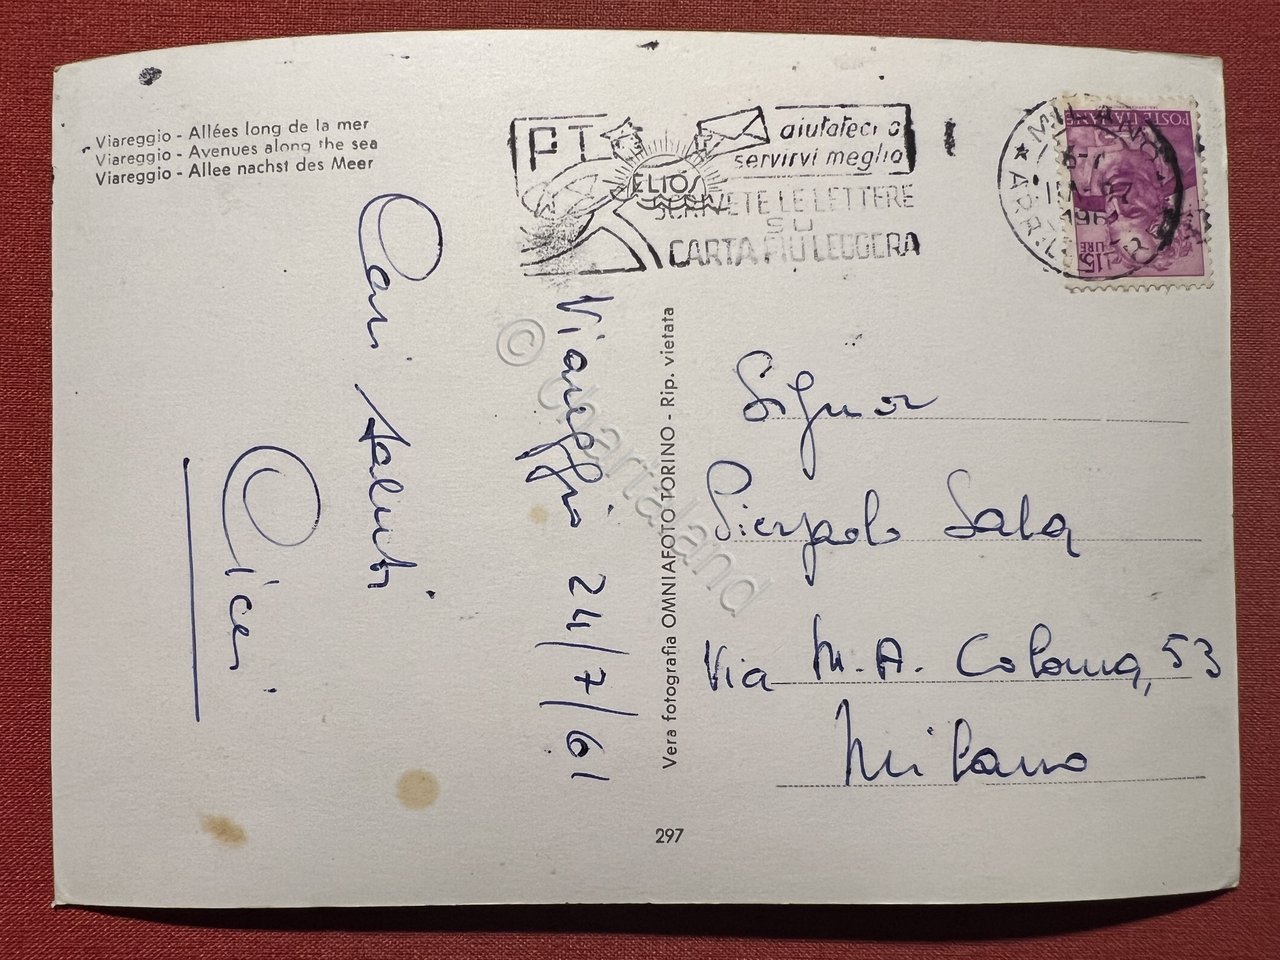 Viareggio - Allées long de la mer
Viareggio - Avenues along the sea
Viareggio - Allee nachst des Meer
PT
aiutateci a
servirvi meglio
ELIOS
SCRIVETE LE LETTERE
SU
CARTA PIÙ LEGGERA
MILANO
ARR
196
POSTE ITALIANE
LIRE 15
Viareggio 24/7/61
Cari saluti
Vera fotografia OMNIAFOTO TORINO - Rip. vietata
Signor
Pierpaolo Sala
Via M. A. Colonna, 53
Milano
297
© Chartaland